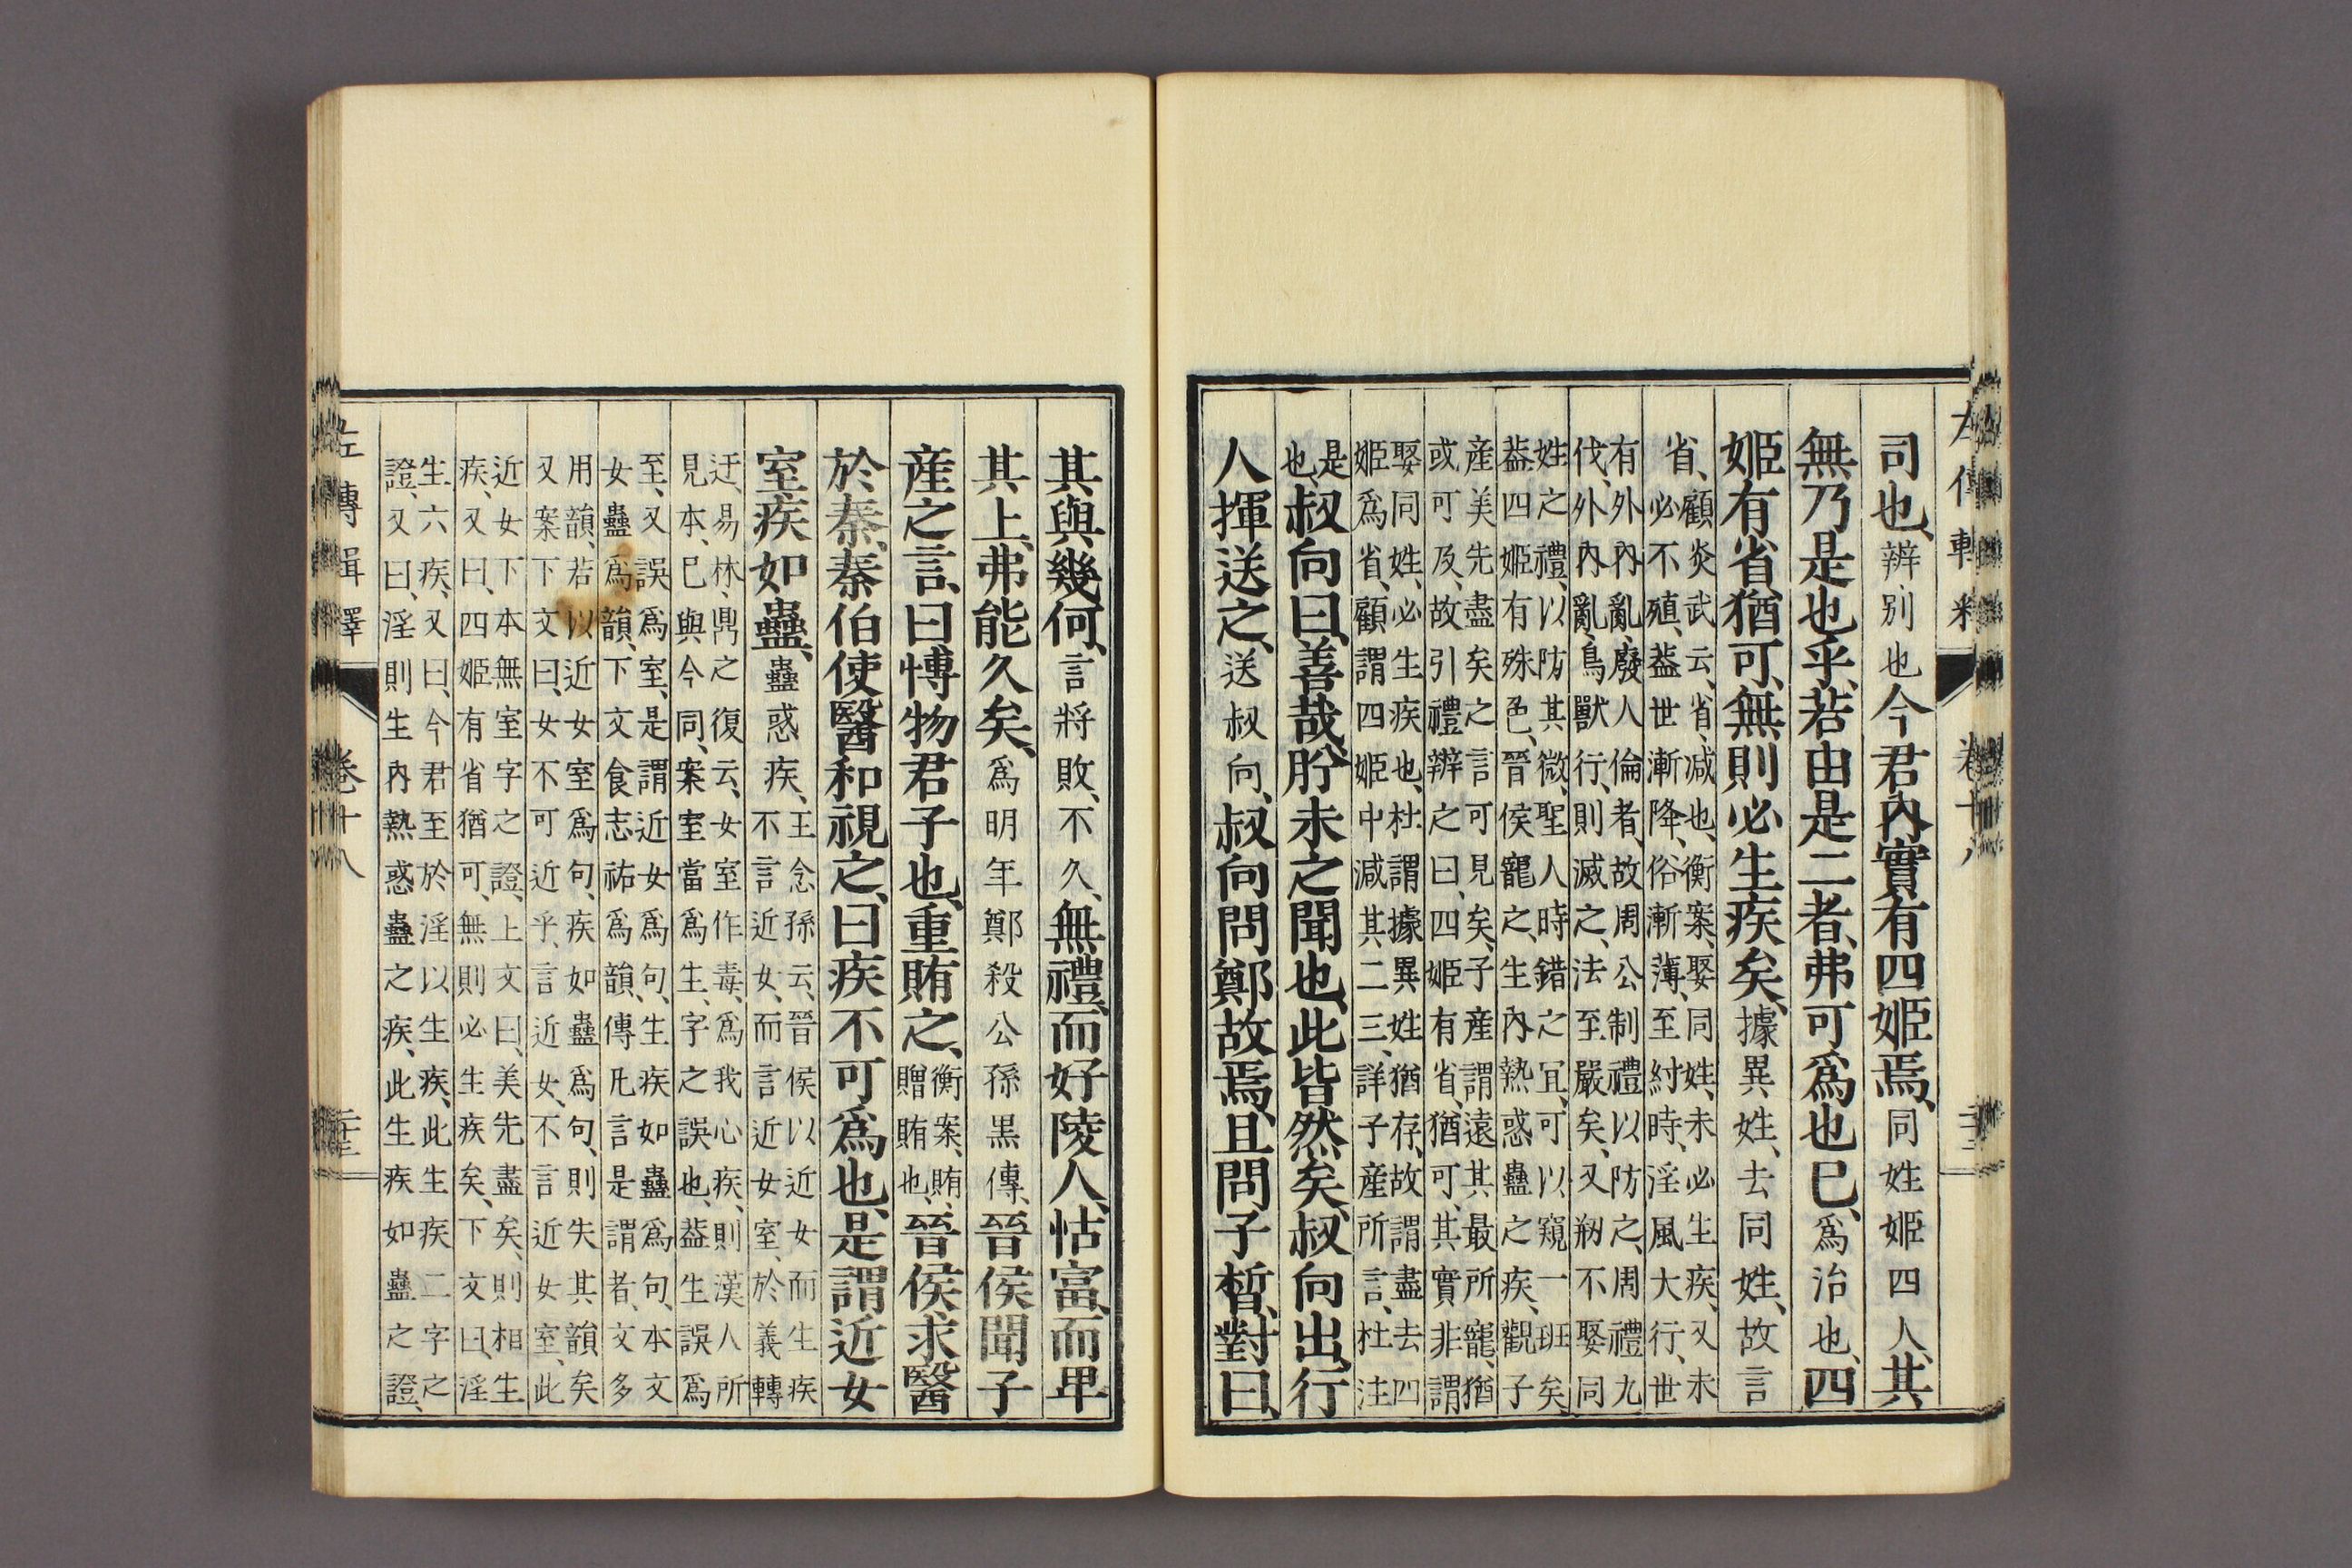 司也、辨、別也今君內實有四姬焉、同姓姬四人、其
無乃是也乎、若由是二者、弗可爲也已、爲治也、四
姬有省猶可、無則必生疾矣、據異姓、去同姓、故言
省、顧炎武云、省、減也、衡案、娶同姓、未必生疾、又未
必不殖、蓋世漸降、俗漸薄、至紂時、淫風大行、世
有外內亂、廢人倫者、故周公制禮以防之、周禮九
伐、外內亂、鳥獸行、則滅之、法至嚴矣、又刱不娶同
姓之禮、以防其微、聖人時錯之宜、可以窺一班矣、
蓋四姬有殊色、晉侯寵之、生內熱惑蠱之疾、觀子
産美先盡矣之言可見矣、子産謂遠其最所寵、猶
或可及、故引禮辨之曰、四姬有省、猶可、其實非謂
娶同姓、必生疾也、杜謂據異姓猶存、故謂盡去四
姬爲省、顧謂四姬中減其二三、詳子産所言、杜注
是也、叔向曰、善哉、肸未之聞也、此皆然矣、叔向出、行
人揮送之、送叔向、叔向問鄭故焉、且問子皙、對曰、
其與幾何、言將敗、不久、無禮、而好陵人、怙富、而卑
其上、弗能久矣、爲明年鄭殺公孫黑傳、晉侯聞子
産之言、曰、愽物君子也、重賄之、衡案、賄、贈賄也、晉侯求醫
於秦、秦伯使醫和視之、曰疾不可爲也、是謂近女
室疾如蠱、蠱惑疾、王念孫云、晉侯以近女而生疾
不言近女、而言近女室、於義轉
迂、易林、鼎之復云、女室作毒、爲我心疾、則漢人所
見本、已與今同、案室當爲生、字之誤也、蓋生誤爲
至、又誤爲室、是謂近女爲句、生疾如蠱爲句、本文
女蠱爲韻、下文食志祐爲韻、傳凡言是謂者、文多
用韻、若以近女室爲句、疾如蠱爲句、則失其韻矣
又案下文曰、女不可近乎、言近女、不言近女室、此
近女下本無室字之證、上文曰、美先盡矣、則相生
疾、又曰、四姬有省猶可、無則必生疾矣、下文曰、淫
生六疾、又曰、今君至於淫以生疾、此生疾二字之
證、又曰、淫則生內熱惑蠱之疾、此生疾如蠱之證、
左傳輯釋 卷十八